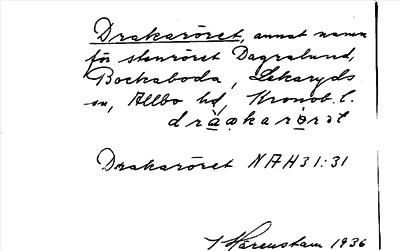 Drakaröret, annat namn
för stenröret Dagralund,
Bockaboda, Lekaryds
sn, Allbo hd, Kronob. l.
Drakaröret NAH31:31
Härenstam 1936